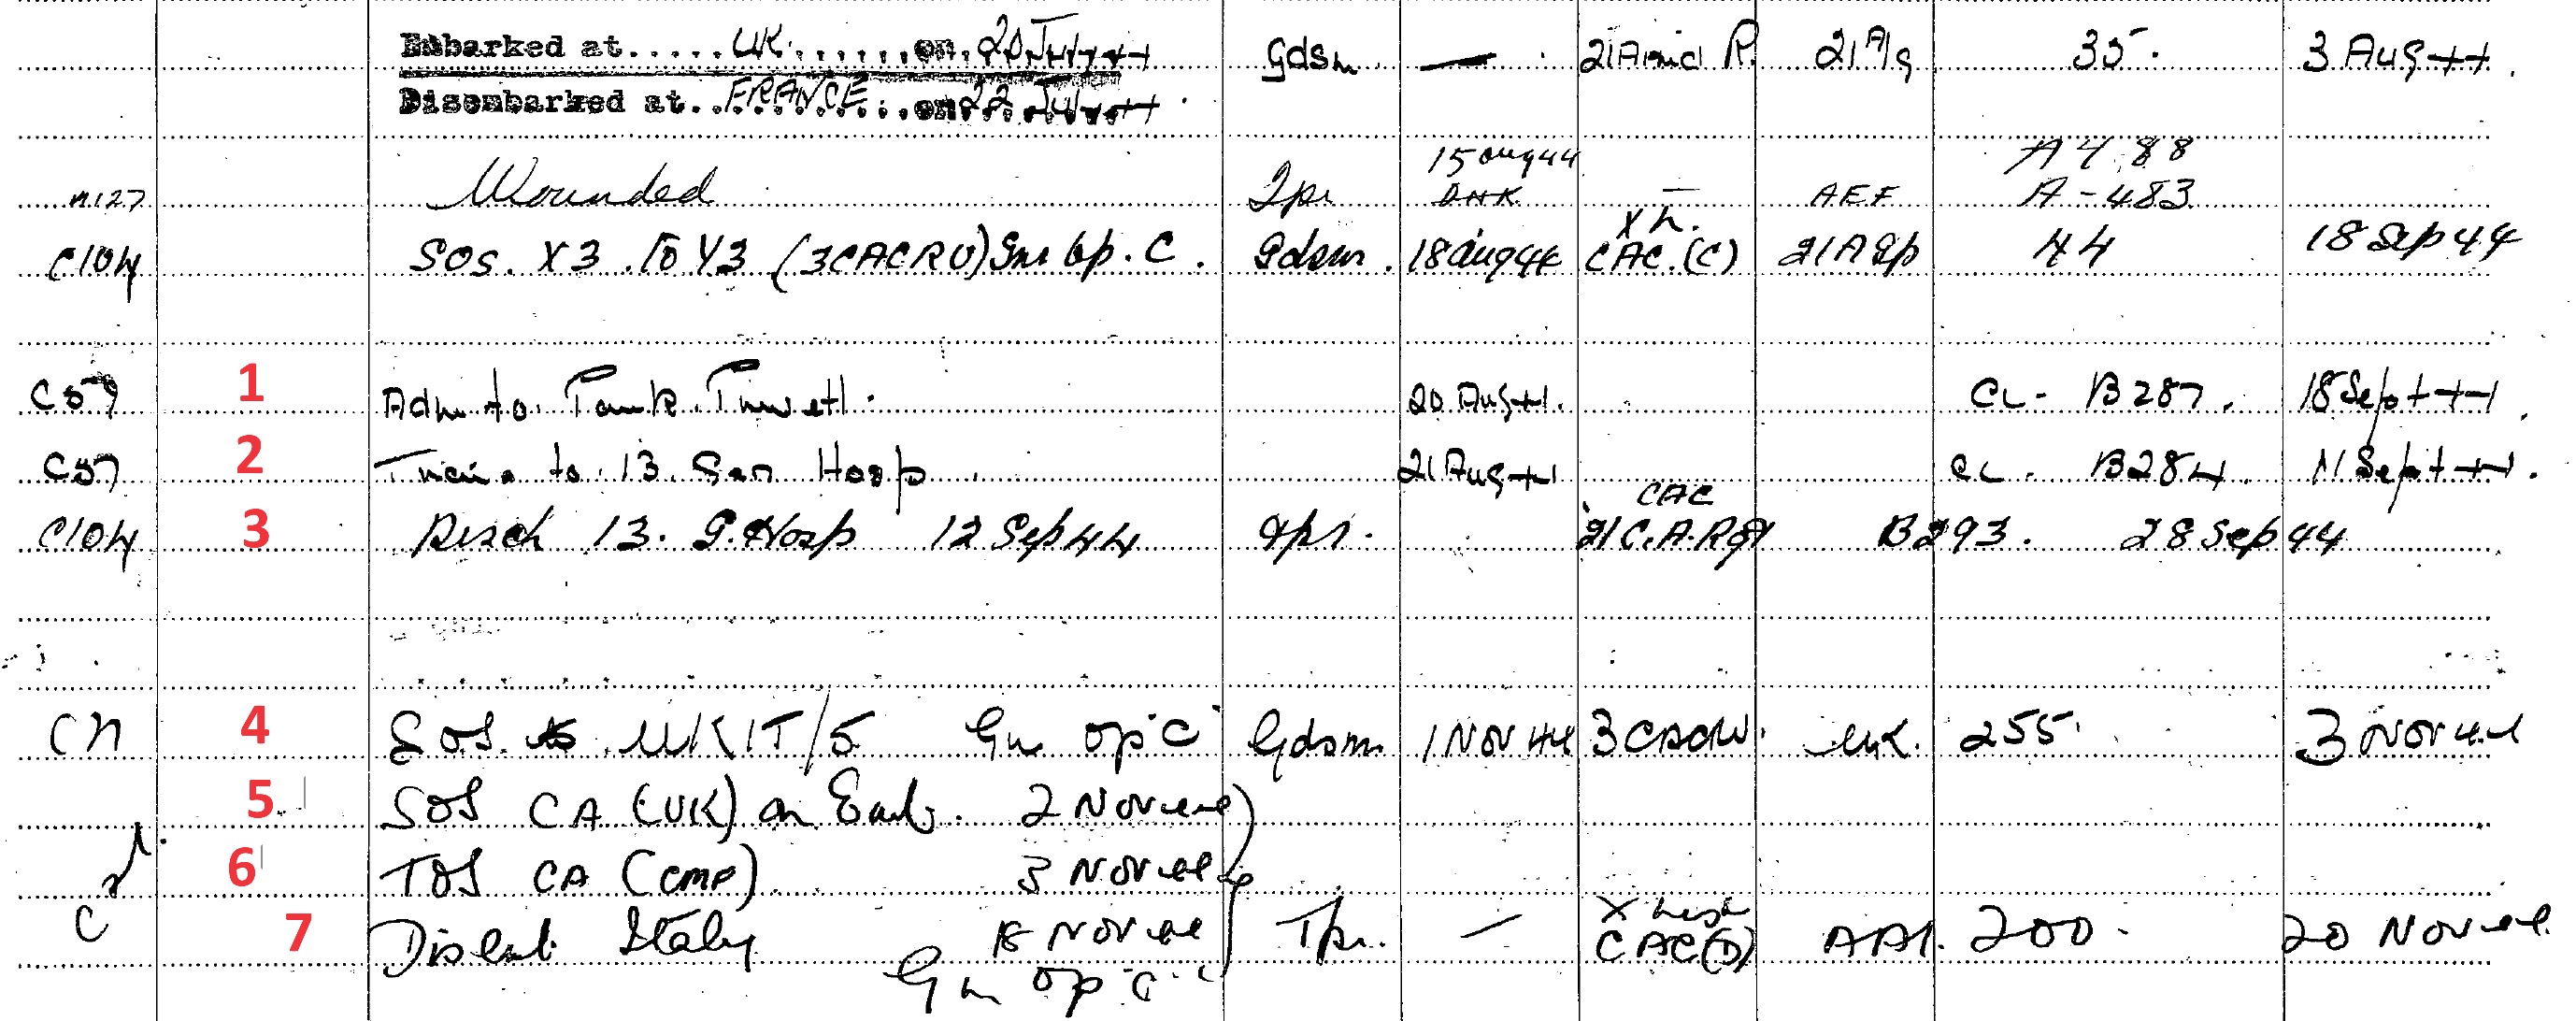 Embarked at.....UK.......on.20 July 44 Gdsm — 21 Armd R. 21 A/g 35. 3 Aug 44.
Disembarked at..FRANCE...on 22 July 44.
15 Aug 44 A 488
M127 Wounded Tpr DNK — AEF A-483
X h.
C104 SOS. X3. To Y3 (3CACRU) Gnr Op. C. Gdsm. 18 Aug 44 CAC.(C) 21 A Gp 44 18 Sep 44
C57 1 Adm to 20 Aug 44. CL- B287. 18 Sept 44.
C57 2 to 13 Gen Hosp. 21 Aug 44 CL- B284. 11 Sept 44.
CAC
C104 3 Disch 13. G. Hosp 12 Sep 44 Tpr. 21 C.A.Rgt B293. 28 Sep 44
4 SOS to UK1T/5 Gnr op "C" Gdsm 1 NOV 44 3 CACRU. UK. 255. 3 NOV 44
5 SOS CA (UK) on Emb. 2 NOV 44
6 TOS CA (CMF) 3 NOV 44
X list
C 7 Disemb. Italy 18 NOV 44 Tpr. — CAC(D) AAI. 200. 20 NOV 44
Gnr op "C"